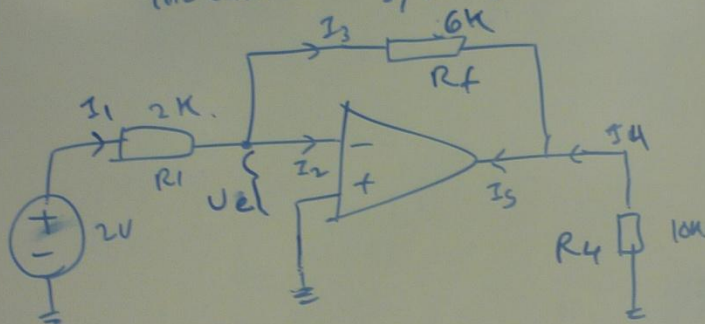 I3
6K
Rf
I1
2K.
R1
I2
Ve
−
+
I5
I4
+
−
2V
R4
10K